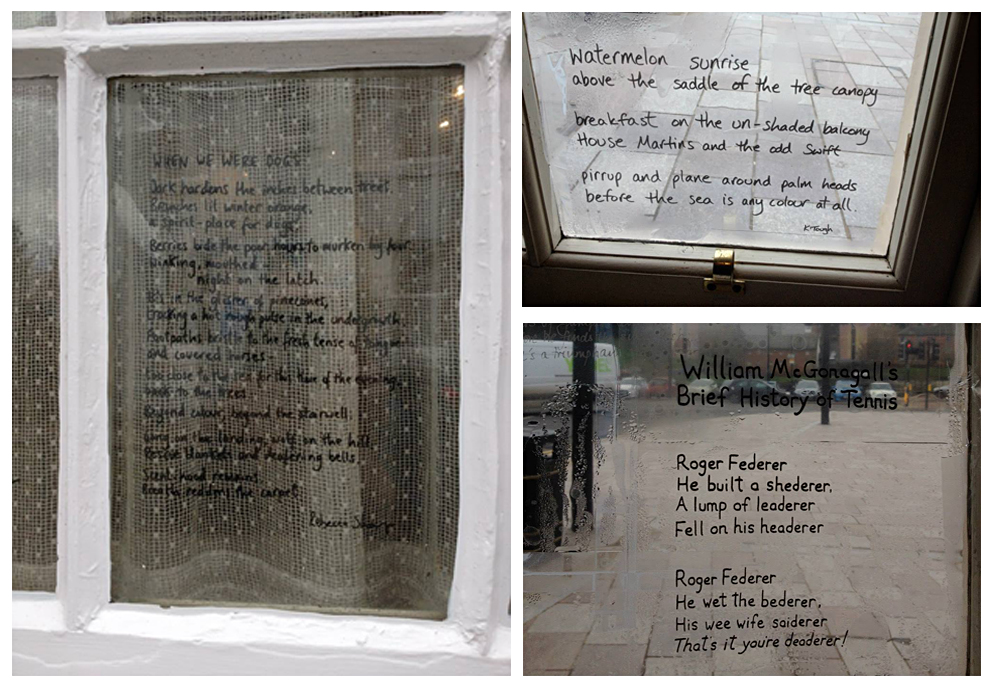 WHEN WE WERE DOGS
Dark hardens the inches between trees.
Branches lit winter orange,
a spirit-place for dogs.
Berries bide the poor hours to murken by four.
Winking, mouthed
night on the latch.
in the of pinecones,
Cracking a hot rough pulse in the undergrowth.
Footpaths bristle to the fresh tense of
and covered horses-
close to for this hour of the evening,
to the trees.
Beyond colour, beyond the stairwell,
on the landing, wolf on the hill.
blankets and deafening bells.
hand remains
the carpet.
Rebecca
Watermelon sunrise
above the saddle of the tree canopy
breakfast on the un-shaded balcony
House Martins and the odd Swift
pirrup and plane around palm heads
before the sea is any colour at all.
K Tough
's a triumph
William McGonagall's
Brief History of Tennis
Roger Federer
He built a shederer,
A lump of leaderer
Fell on his headerer
Roger Federer
He wet the bederer,
His wee wife saiderer
That's it you're deaderer!